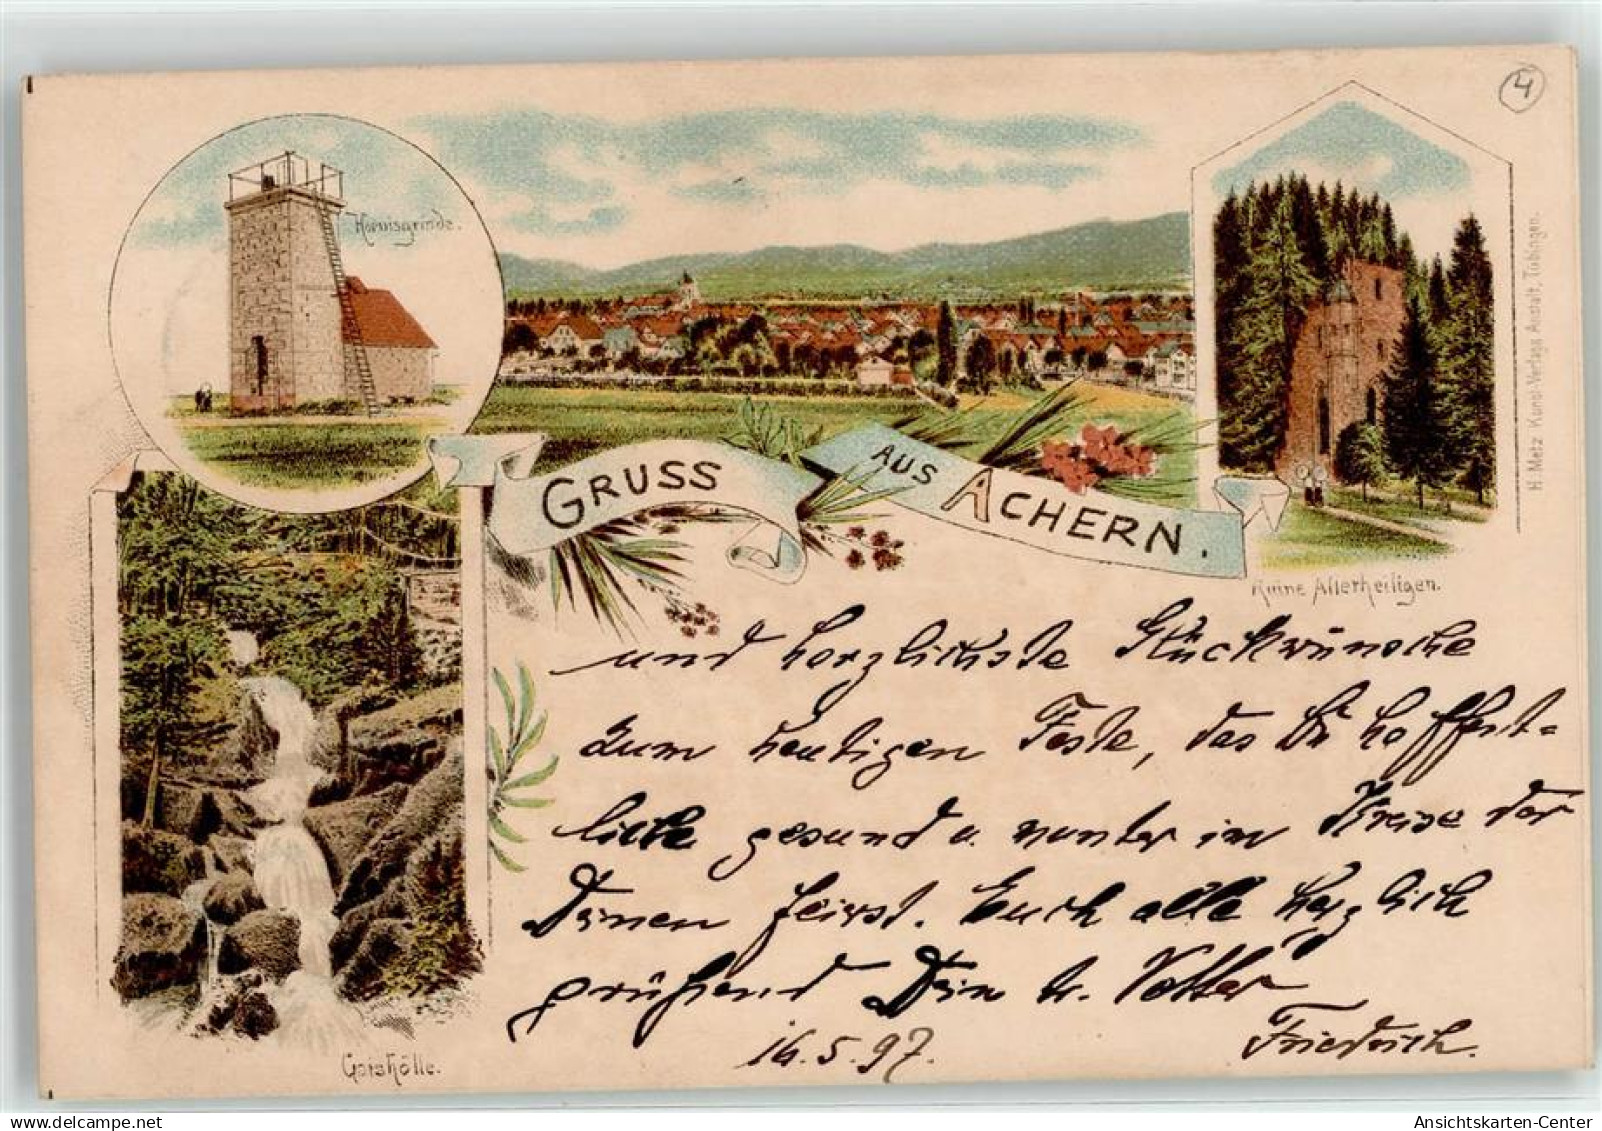 4
Hornisgrinde.
H. Metz Kunst-Verlags Anstalt, Tübingen.
GRUSS AUS ACHERN.
Ruine Allerheiligen.
und herzlichste Glückwünsche
zum heutigen Feste, das Du hoffent=
liche gesund u. munter im Kreise der
Deinen feierst. Euch alle herzlich
grüßend Dein tr. Vetter
16.5.97. Friedrich.
Gaishölle.
Ansichtskarten-Center